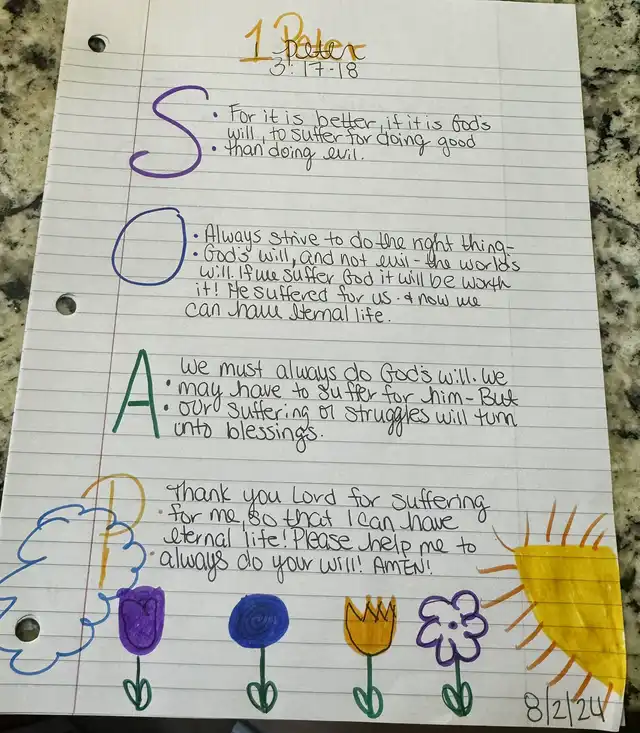 1 Peter
3:17-18
S
• For it is better, if it is God's
will, to suffer for doing good
• than doing evil.
O
• Always strive to do the right thing-
• God's will, and not evil - the worlds
will. If we suffer God it will be worth
it! He suffered for us. & now we
can have eternal life.
A
We must always do God's will. We
• may have to suffer for him - But
• our suffering or struggles will turn
unto blessings.
P
Thank you Lord for suffering
• for me, so that I can have
eternal life! Please help me to
• always do your will! AMEN!
8/2/24